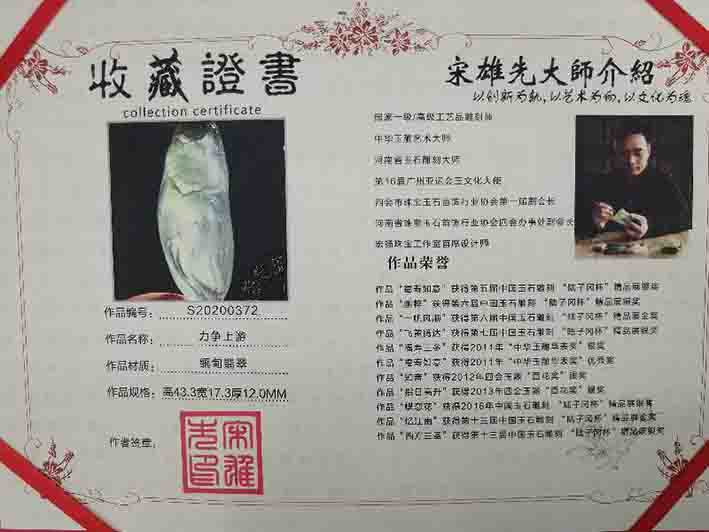 收藏證書
collection certificate
作品编号: S20200372
作品名称: 力争上游
作品材质: 缅甸翡翠
作品规格: 高43.3宽17.3厚12.0MM
作者签章:
宋雄先大師介紹
以创新为轨,以艺术为向,以文化为魂
国家一级/高级工艺品雕刻师
中华玉雕艺术大师
河南省玉石雕刻大师
第16届广州亚运会玉文化大使
四会市珠宝玉石首饰行业协会第一届副会长
河南省珠宝玉石首饰行业协会四会办事处副会长
宏扬珠宝工作室首席设计师
作品荣誉
作品“福寿如意”获得第五届中国玉石雕刻“陆子冈杯”精品展银奖
获得第六届中国玉石雕刻“陆子冈杯”精品展银奖
作品“一帆风顺”获得第六届中国玉石雕刻“陆子冈杯”精品展金奖
作品“飞黄腾达”获得第七届中国玉石雕刻“陆子冈杯”精品展银奖
获得2011年“中华玉雕华表奖”银奖
作品“福寿如意”获得2011年“中华玉雕华表奖”优秀奖
获得2012年四会玉雕“百花奖”银奖
作品“指日高升”获得2013年四会玉雕“百花奖”银奖
作品“蝶恋花”获得2016年中国玉石雕刻“陆子冈杯”精品展铜奖
作品“忆江南”获得第十三届中国玉石雕刻“陆子冈杯”精品展金奖
作品“西方三圣”获得第十三届中国玉石雕刻“陆子冈杯”精品展银奖